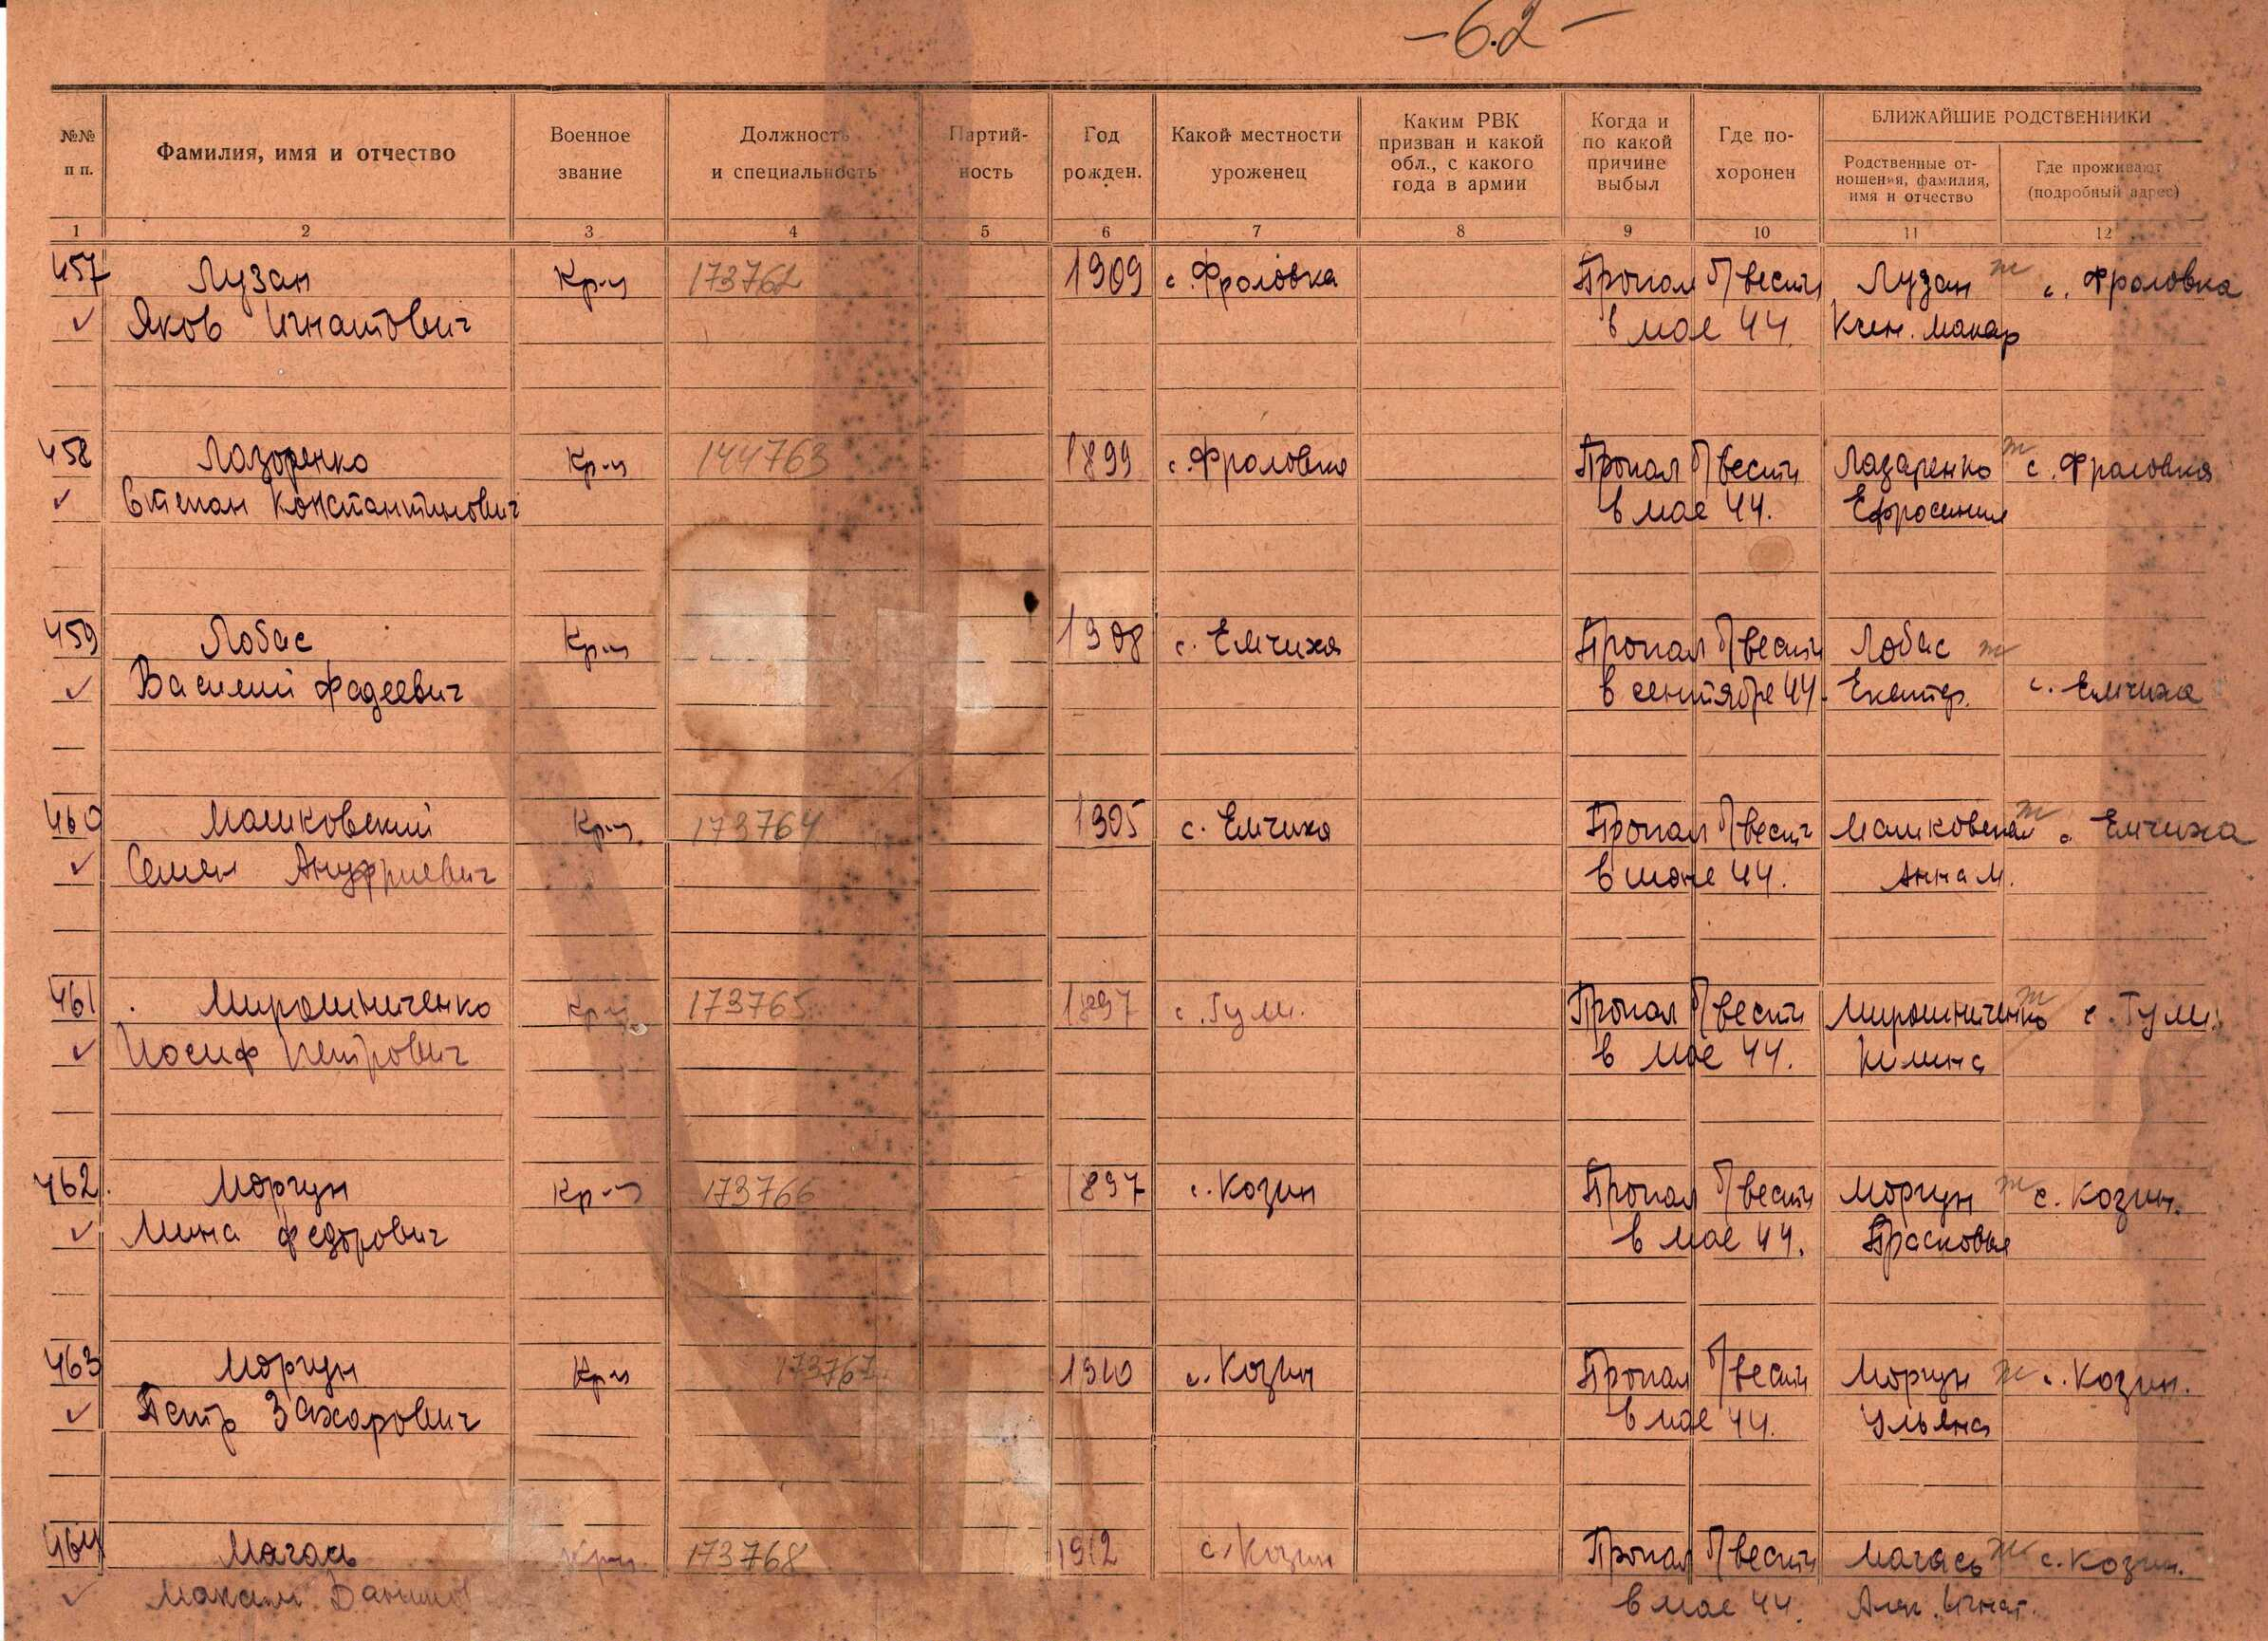 -62-
№№ п п.
Фамилия, имя и отчество
Военное звание
Должность и специальность
Партий- ность
Год рожден.
Какой местности уроженец
Каким РВК призван и какой обл., с какого года в армии
Когда и по какой причине выбыл
Где по- хоронен
БЛИЖАЙШИЕ РОДСТВЕННИКИ
Родственные от- ношения, фамилия, имя и отчество
Где проживают (подробный адрес)
1 2 3 4 5 6 7 8 9 10 11 12
457 Лузан Кр-ц 173762 1909 с. Фроловка Пропал б/вести Лузан ж с. Фроловка
Яков Игнатович в мае 44. Ксен. Макар
458 Лазоренко Кр-ц 144763 1899 с. Фроловка Пропал б/вести Лазаренко ж с. Фроловка
Степан Константинович в мае 44. Ефросиния
459 Лобас Кр-ц 1908 с. Емчиха Пропал б/вести Лобас ж
Василий Фадеевич в сентябре 44. Екатер. с. Емчиха
460 Машковский Кр-ц. 173764 1905 с. Емчиха Пропал б/вест Машковская ж с. Емчиха
Семен Ануфриевич в июне 44. Анна М.
461 Мирошниченко Кр-ц 173765 1897 с. Гули. Пропал б/вести Мирошниченко ж с. Гули.
Иосиф Петрович в мае 44.
462. Моргун Кр-ц 173766 1897 с. Козин Пропал б/вести Моргун ж с. Козин.
Мина Федорович в мае 44. Прасковья
463 Моргун Кр-ц 173767 1910 с. Козин Пропал б/вести Моргун ж с. Козин.
Петр Захарович в мае 44. Ульяна
464 Магась Кр-ц. 173768 1912 с. Козин Пропал б/вести Магась ж с. Козин.
Максим Данилов в мае 44. Алек. Игнат.